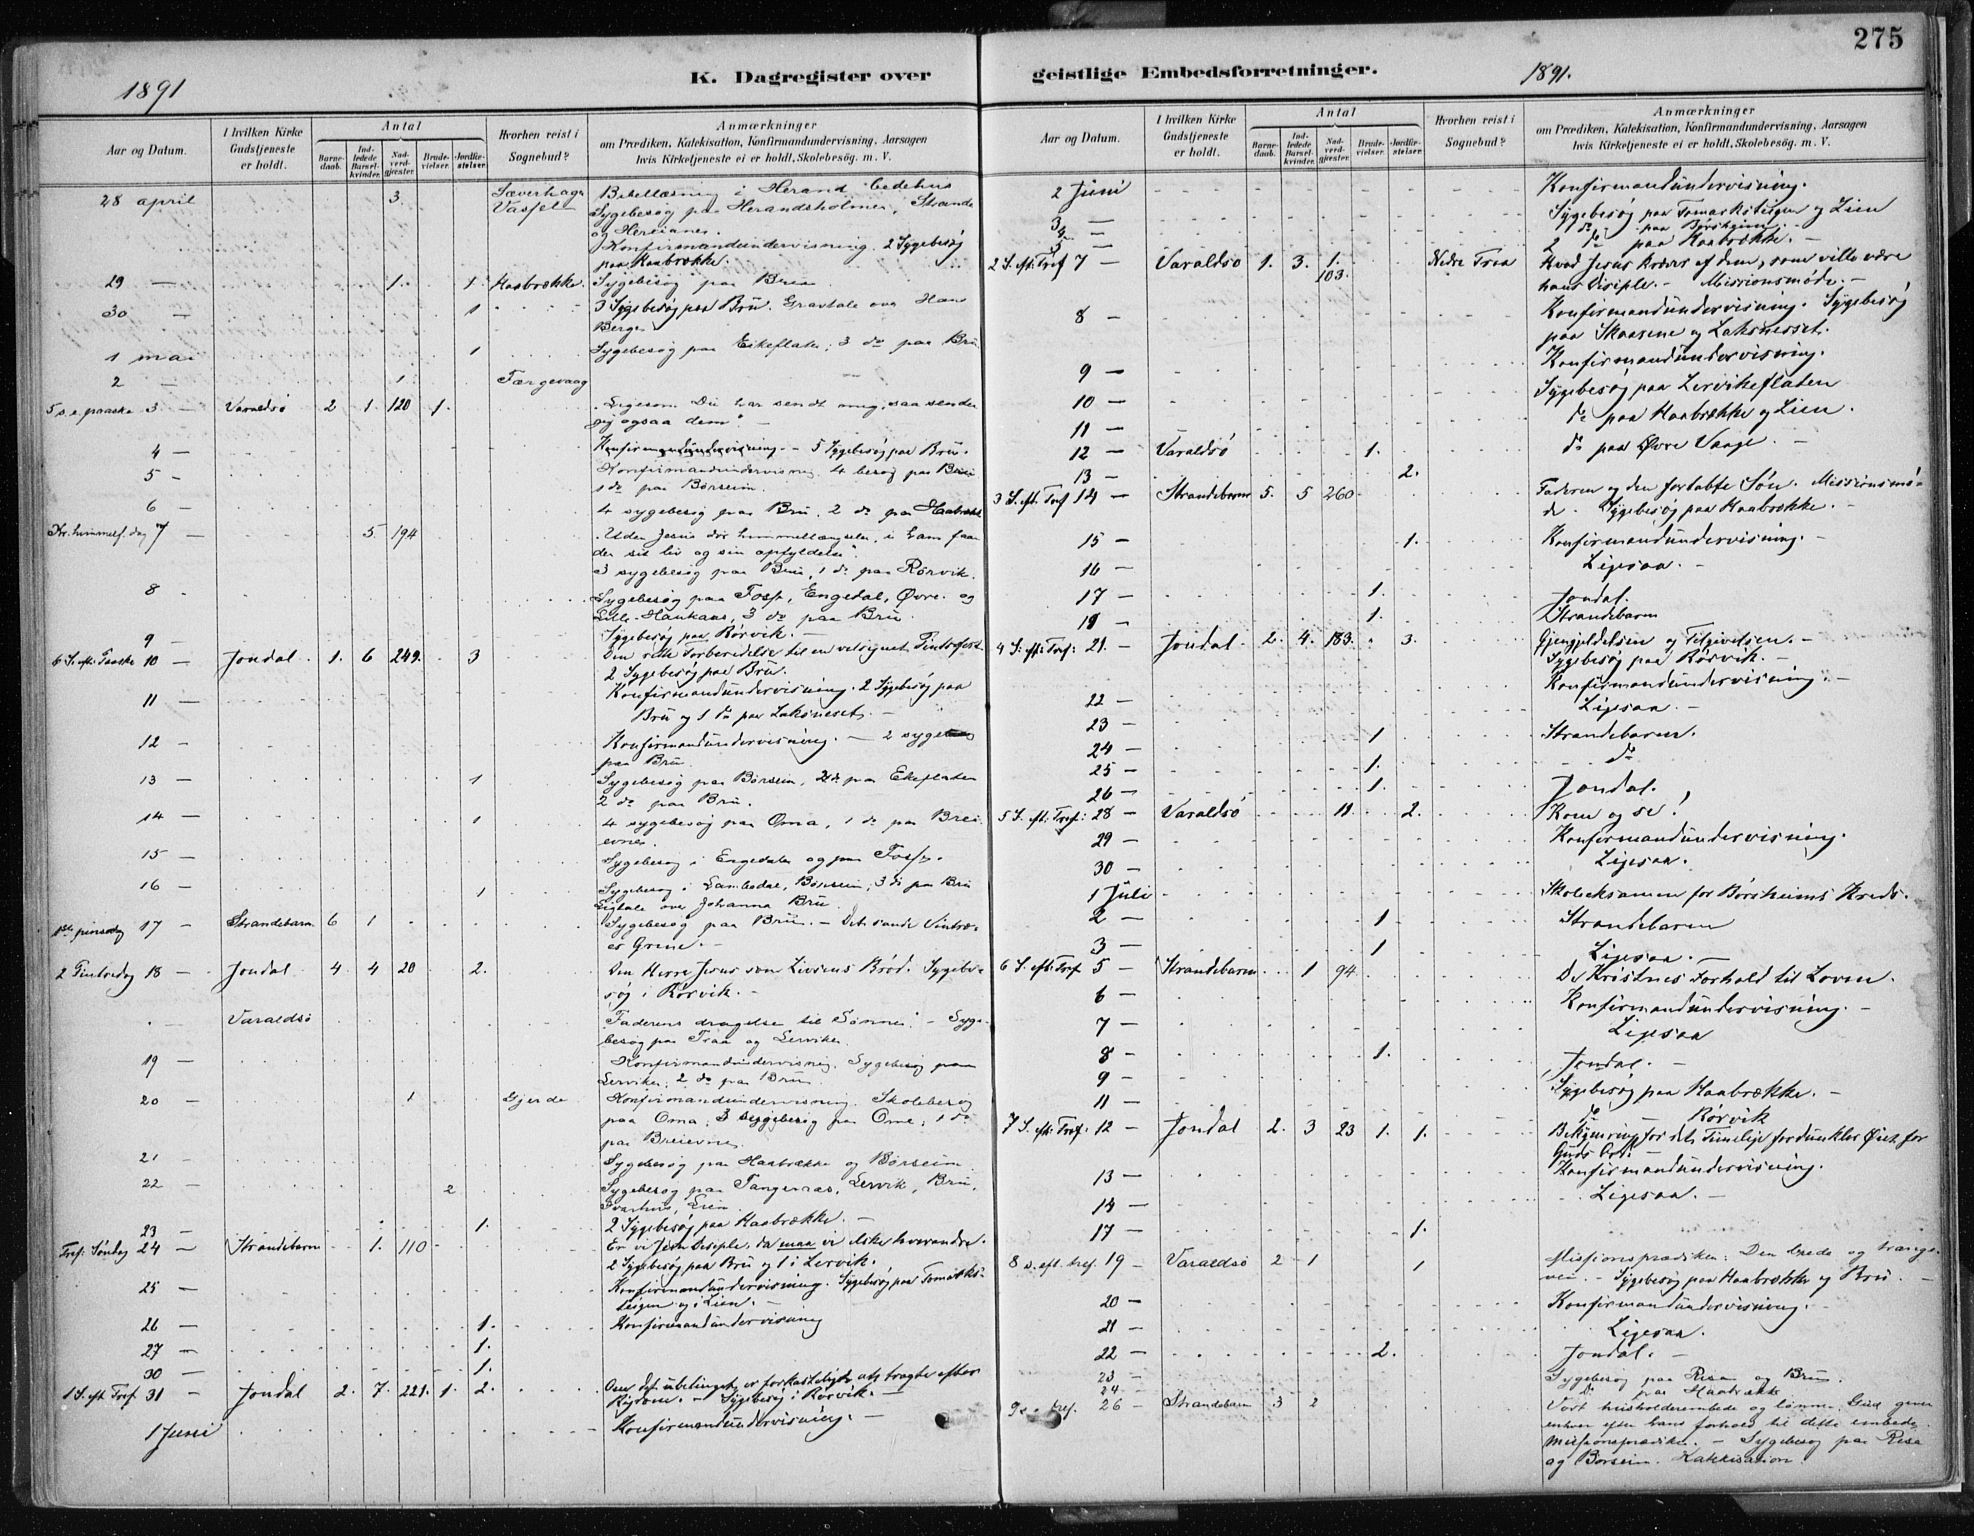 275
1891
K. Dagregister over
geistlige Embedsforretninger.
1891.
Aar og Datum.
I hvilken Kirke Gudstjeneste er holdt.
Antal
Barnedaab.
Indledede Barselkvinder.
Nadverdgjester.
Brudevielser.
Jordfæstelser.
Hvorhen reist i Sognebud?
Anmærkninger
om Prædiken, Katekisation, Konfirmandundervisning, Aarsagen
hvis Kirketjeneste ei er holdt, Skolebesøg. m. V.
28 april 3. Sæverhagn Bibellæsning i Herand bedehus
Vassel Sygebesøg paa Herandsholmen, Strande
og Hereianes.
Konfirmandundervisning. 2 Sygebesøg
paa Haabrække.
29 — 1. 1 Haabrække. Sygebesøg paa
30 — 1 3 Sygebesøg paa Brû. Gravtale over Hans
Berge
1 mai 1 Sygebesøg paa Eikeflaten; 3 do paa Brû
2 — 1 Tørgevaag
5 s. e. paaske 3 — Varaldsø 2 1. 120 1. "Ligesom Du har sendt mig, saa sender
jeg ogsaa dem" —
4 — Konfirmandundervisning. — 5 Sygebesøg paa Brû.
5 — Konfirmandundervisning. 4 besøg paa
1 do paa Børseim.
6 — 4 sygebesøg paa Brû, 2 do paa Haabrække
Kr. himmelf. dag 7 — 5 194 "Uden Jesus dør himmellængselen, i ham faar
den sit liv og sin opfyldelse".
3 sygebesøg paa Brû, 1 do paa Rørvik.
8 - Sygebesøg paa Foss, Engedal, Øvre- og
Lille-Haukaas, 3 do paa Brû.
9 — Sygebesøg paa Rørvik. —
6 S. eft. Paaske 10 — Jondal 1. 6 249. 3 Den rette Forberedelse til en velsignet Pintsefest
2 Sygebesøg paa Brû.
11 — Konfirmandundervisning. 2 Sygebesøg paa
Brû og 1 do paa Laksneset. —
12 - Konfirmandundervisning. — 2 sygebesøg
paa Brû.
13 1 Sygebesøg paa Børseim, 2 do paa Ekeflaten
2 do paa Brû.
14 — 1 4 sygebesøg paa Oma, 1 do paa Brei-
evnes.
15 — Sygebesøg i Engedalen og paa Foss.
16 — 1 Sygebesøg i Lambedal, Børseim; 3 do paa Brû
Ligtale over Johanna Brû
1ste pinsedag 17 - Strandebarm 6 1 Sygebesøg paa Brû. — Det sande Vintræ-
es Grene. —
2 Pintsedag 18 — Jondal 4. 4 20 2. Den Herre Jesus som Livsens Brød. Sygebe-
søg i Rørvik. —
Varaldsø Faderens dragelse til Sønnen. — Syge-
besøg paa Traa og Lerviken
19 — Konfirmandundervisning. Sygebesøg paa
Lerviken, 2 do paa Brû
20 — 1 Gjerde Konfirmandundervisning. Skolebesøg
paa Oma; 3 sygebesøg paa Oma, 1 do
paa Breievnes
21 — Sygebesøg paa Haabrække og Børseim
22 — 2 Sygebesøg paa Tangeraas, Lervik, Brû,
23 1. 2 Sygebesøg paa Haabrække. —
Tref. Søndag 24 — Strandebarm 1. 110 Er vi Jesu Disiple, da maa vi elske hverandre.
2 Sygebesøg paa Brû og 1 i Lervik.
25 — Konfirmandundervisning. Sygebesøg paa Tomasks-
tuigen og i Lien. —
26 — 1. Konfirmandundervisning
27 — 1.
30 — 1.
1 S. eft Tref 31 — Jondal 2. 7. 221. 1. 2. Om det ubetinget er forkasteligt att tragte efter
Rigdom. — Sygebesøg i Rørvik. —
1 Juni Konfirmandundervisning. —
Aar og Datum.
I hvilken Kirke Gudstjeneste er holdt.
Antal
Barnedaab.
Indledede Barselkvinder.
Nadverdgjester.
Brudevielser.
Jordfæstelser.
Hvorhen reist i Sognebud?
Anmærkninger
om Prædiken, Katekisation, Konfirmandundervisning, Aarsagen
hvis Kirketjeneste ei er holdt, Skolebesøg. m. V.
2 Juni Konfirmandundervisning.
3 — Sygebesøg paa Tomaskstuigen og Lien
4 — do paa Børsheim. —
5 — 2 do paa Haabrække. —
2 S. eft. Tref 7 — Varaldsø 1. 3. 1. 103. Nedre Traa Hvad Jesus kræver af dem, som ville være
hans Disiple. — Missionsmøde. —
8 — Konfirmandundervisning. Sygebesøg
paa Skaarene og Laksnesset.
9 — Konfirmandundervisning.
10 — Sygebesøg paa Lervikeflaten
11 — do paa Haabrække og Lien.
12 — Varaldsø 1. do paa Øvre Vaage. —
13 — 2.
3 S. eft. Tref 14 — Strandebarm 5. 5 260 Faderen og den fortabte Søn. Missionsmø-
de. Sygebesøg paa Haabrække. —
15 — 1. Konfirmandundervisning. —
16 — Ligesaa. —
17 — 1. Jondal.
19 — 1. Strandebarm
4 S. eft. Tref: 21. — Jondal 2. 4. 183. 3. Gjengjeldelsen og Tilgivelsen. —
Sygebesøg paa Rørvik. —
22 — Konfirmandundervisning. —
23 — Ligesaa. —
24 — 1 Strandebarm.
25 — 1. do
26 — 1. Jondal.
5 S. eft: Tref: 28 — Varaldsø 11. 2. Kom og se!
29 — Konfirmandundervisning.
30 — Ligesaa.
1 Juli Skoleeksamen for Børsheims Kreds.
2 — 1 Strandebarm
3 — 1 Ligesaa. —
6 S. eft. Tref 5 — Strandebarm 1 94. De Kristnes Forhold til Loven.
6 — Konfirmandundervisning. —
7 — Ligesaa
8 — 1. Jondal. —
9 — Sygebesøg paa Haabrække. —
11 — do — Rørvik
7 S. eft. Tref. 12 — Jondal 2. 3 23 1. 1. Bekymring for det Timelige fordunkler Øiet for
Guds Ord. —
13 — Konfirmandundervisning.
14 — Ligesaa. —
17 — 1.
8 s. eft. tref. 19 — Varaldsø 2 1 1 Missionsprædiken: Den brede og trange
vei. — Sygebesøg paa Haabrække og Brû. —
20 — Konfirmandundervisning. —
21 — Ligesaa.
22 — 2. Jondal. —
23 — Sygebesøg paa Risa og Brû.
24 — Do paa Haabrække
9 s. e tref. 26 — Strandebarm 3 2 Vort husholderembede og lønnen. Gud giver
enhver efter hans forhold til dette embede.
Missionsprædiken. — Sygebesøg paa Risa
og Børseim. Katekisation.